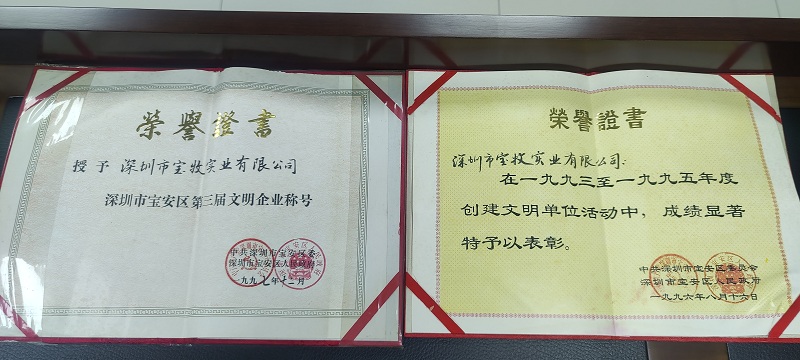 榮譽證書
授予 深圳市宝牧实业有限公司
深圳市宝安区第三届文明企业称号
中共深圳市宝安区委
深圳市宝安区人民政府
一九九七年十二月
榮譽證書
深圳市宝牧实业有限公司:
在一九九三至一九九五年度
创建文明单位活动中，成绩显著
特予以表彰。
中共深圳市宝安区委员会
深圳市宝安区人民政府
一九九六年八月十六日